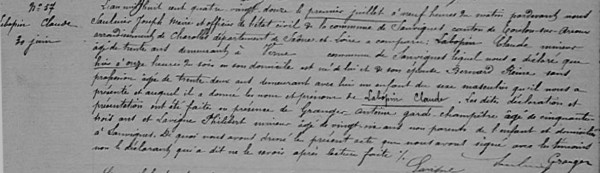 N° 57
Labopin Claude
30 juin
L'an mil huit cent quatre vingt douze le premier juillet à neuf heures du matin pardevant nous
Joseph maire et officier de l'état civil de la commune de Sanvignes, canton de Toulon-sur-Arroux
arrondissement de Charolles département de Saône-et-Loire a comparu : Labopin Claude mineur
âgé de trente ans demeurant à commune de Sanvignes lequel nous a déclaré que
hier à onze heures du soir en son domicile est né de lui et de son épouse Bernard Reine sans
profession âgée de trente deux ans demeurant avec lui un enfant du sexe masculin qu'il nous a
présenté et auquel il a donné les nom et prénoms de Labopin Claude. Les dites déclaration et
présentation ont été faites en présence de Granger Antoine garde champêtre âgé de cinquante-
trois ans et Lavigne Philibert mineur âgé de vingt six ans non parents de l'enfant et domiciliés
à Sanvignes. De quoi nous avons dressé le présent acte que nous avons signé avec les témoins
non le déclarant qui a dit ne le savoir après lecture faite /.
Lavigne Granger